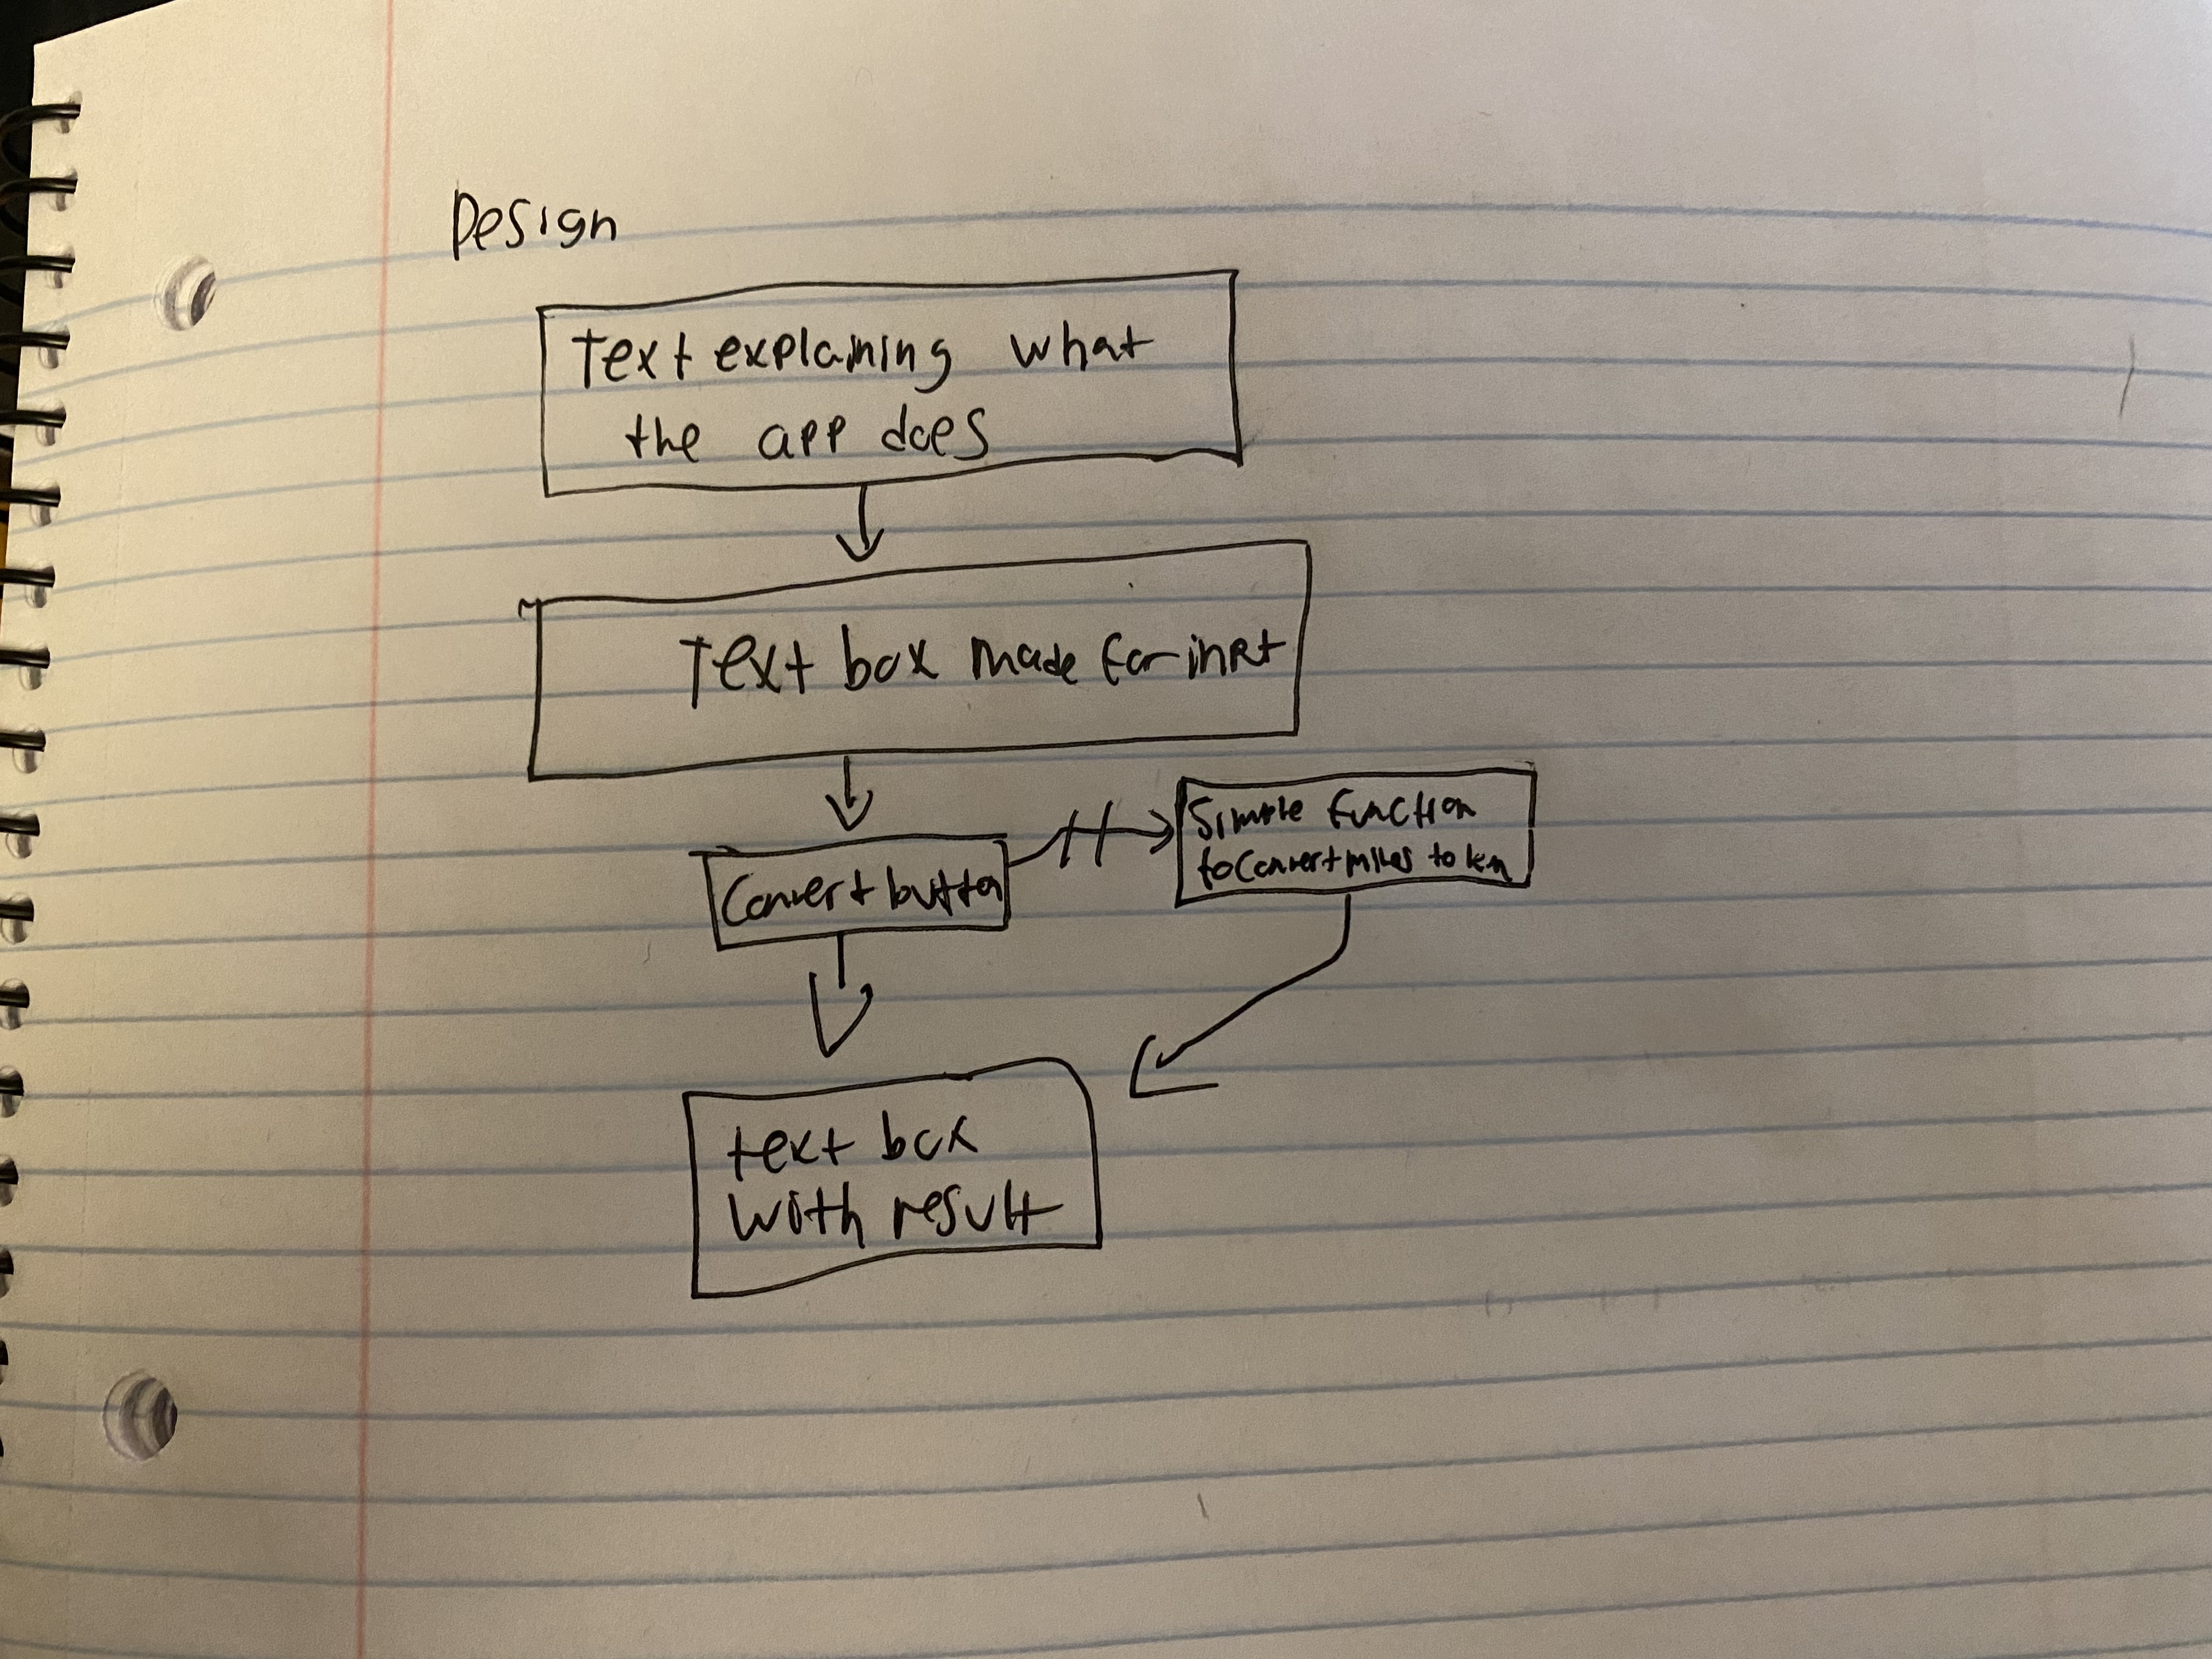 Design
Text explaining what
the app does
Text box made for inpt
Convert button
Simple function
to convert miles to km
text box
with result